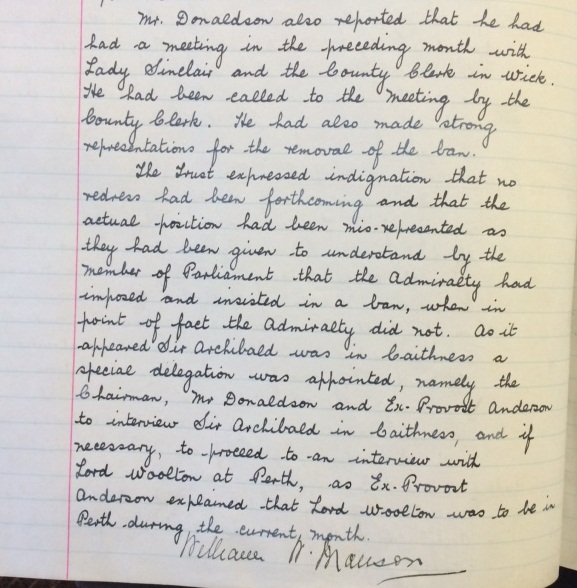 Mr. Donaldson also reported that he had
had a meeting in the preceding month with
Lady Sinclair and the County Clerk in Wick.
He had been called to the meeting by the
County Clerk. He had also made strong
representations for the removal of the ban.
The Trust expressed indignation that no
redress had been forthcoming and that the
actual position had been mis-represented as
they had been given to understand by the
member of Parliament that the Admiralty had
imposed and insisted in a ban, when in
point of fact the Admiralty did not. As it
appeared Sir Archibald was in Caithness a
special delegation was appointed, namely the
Chairman, Mr Donaldson and Ex-Provost Anderson
to interview Sir Archibald in Caithness, and if
necessary, to proceed to an interview with
Lord Woolton at Perth, as Ex-Provost
Anderson explained that Lord Woolton was to be in
Perth during the current month.
William W. Manson